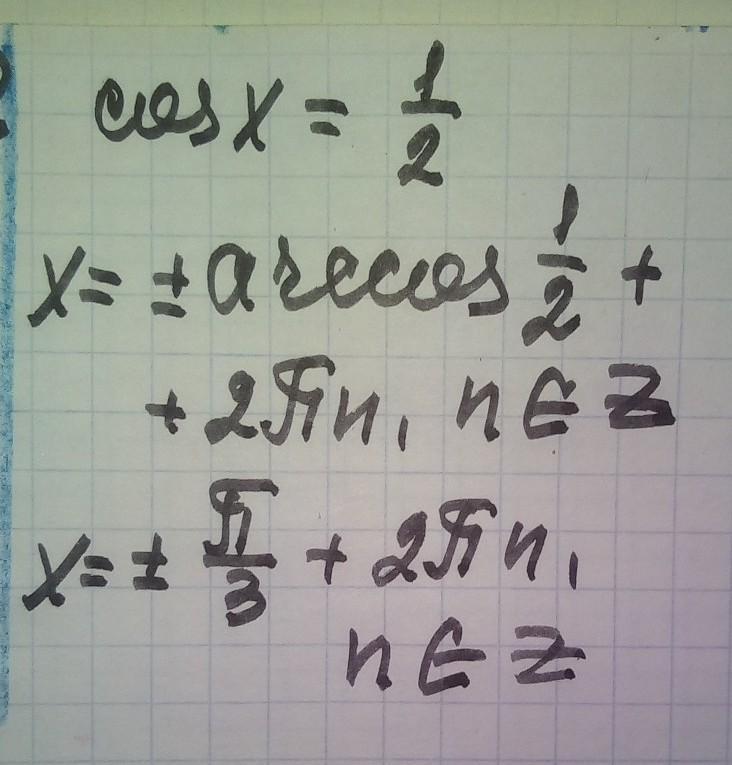 cos x = 1/2
x = ± arccos 1/2 +
+ 2πn, n ∈ Z
x = ± π/3 + 2πn,
n ∈ Z